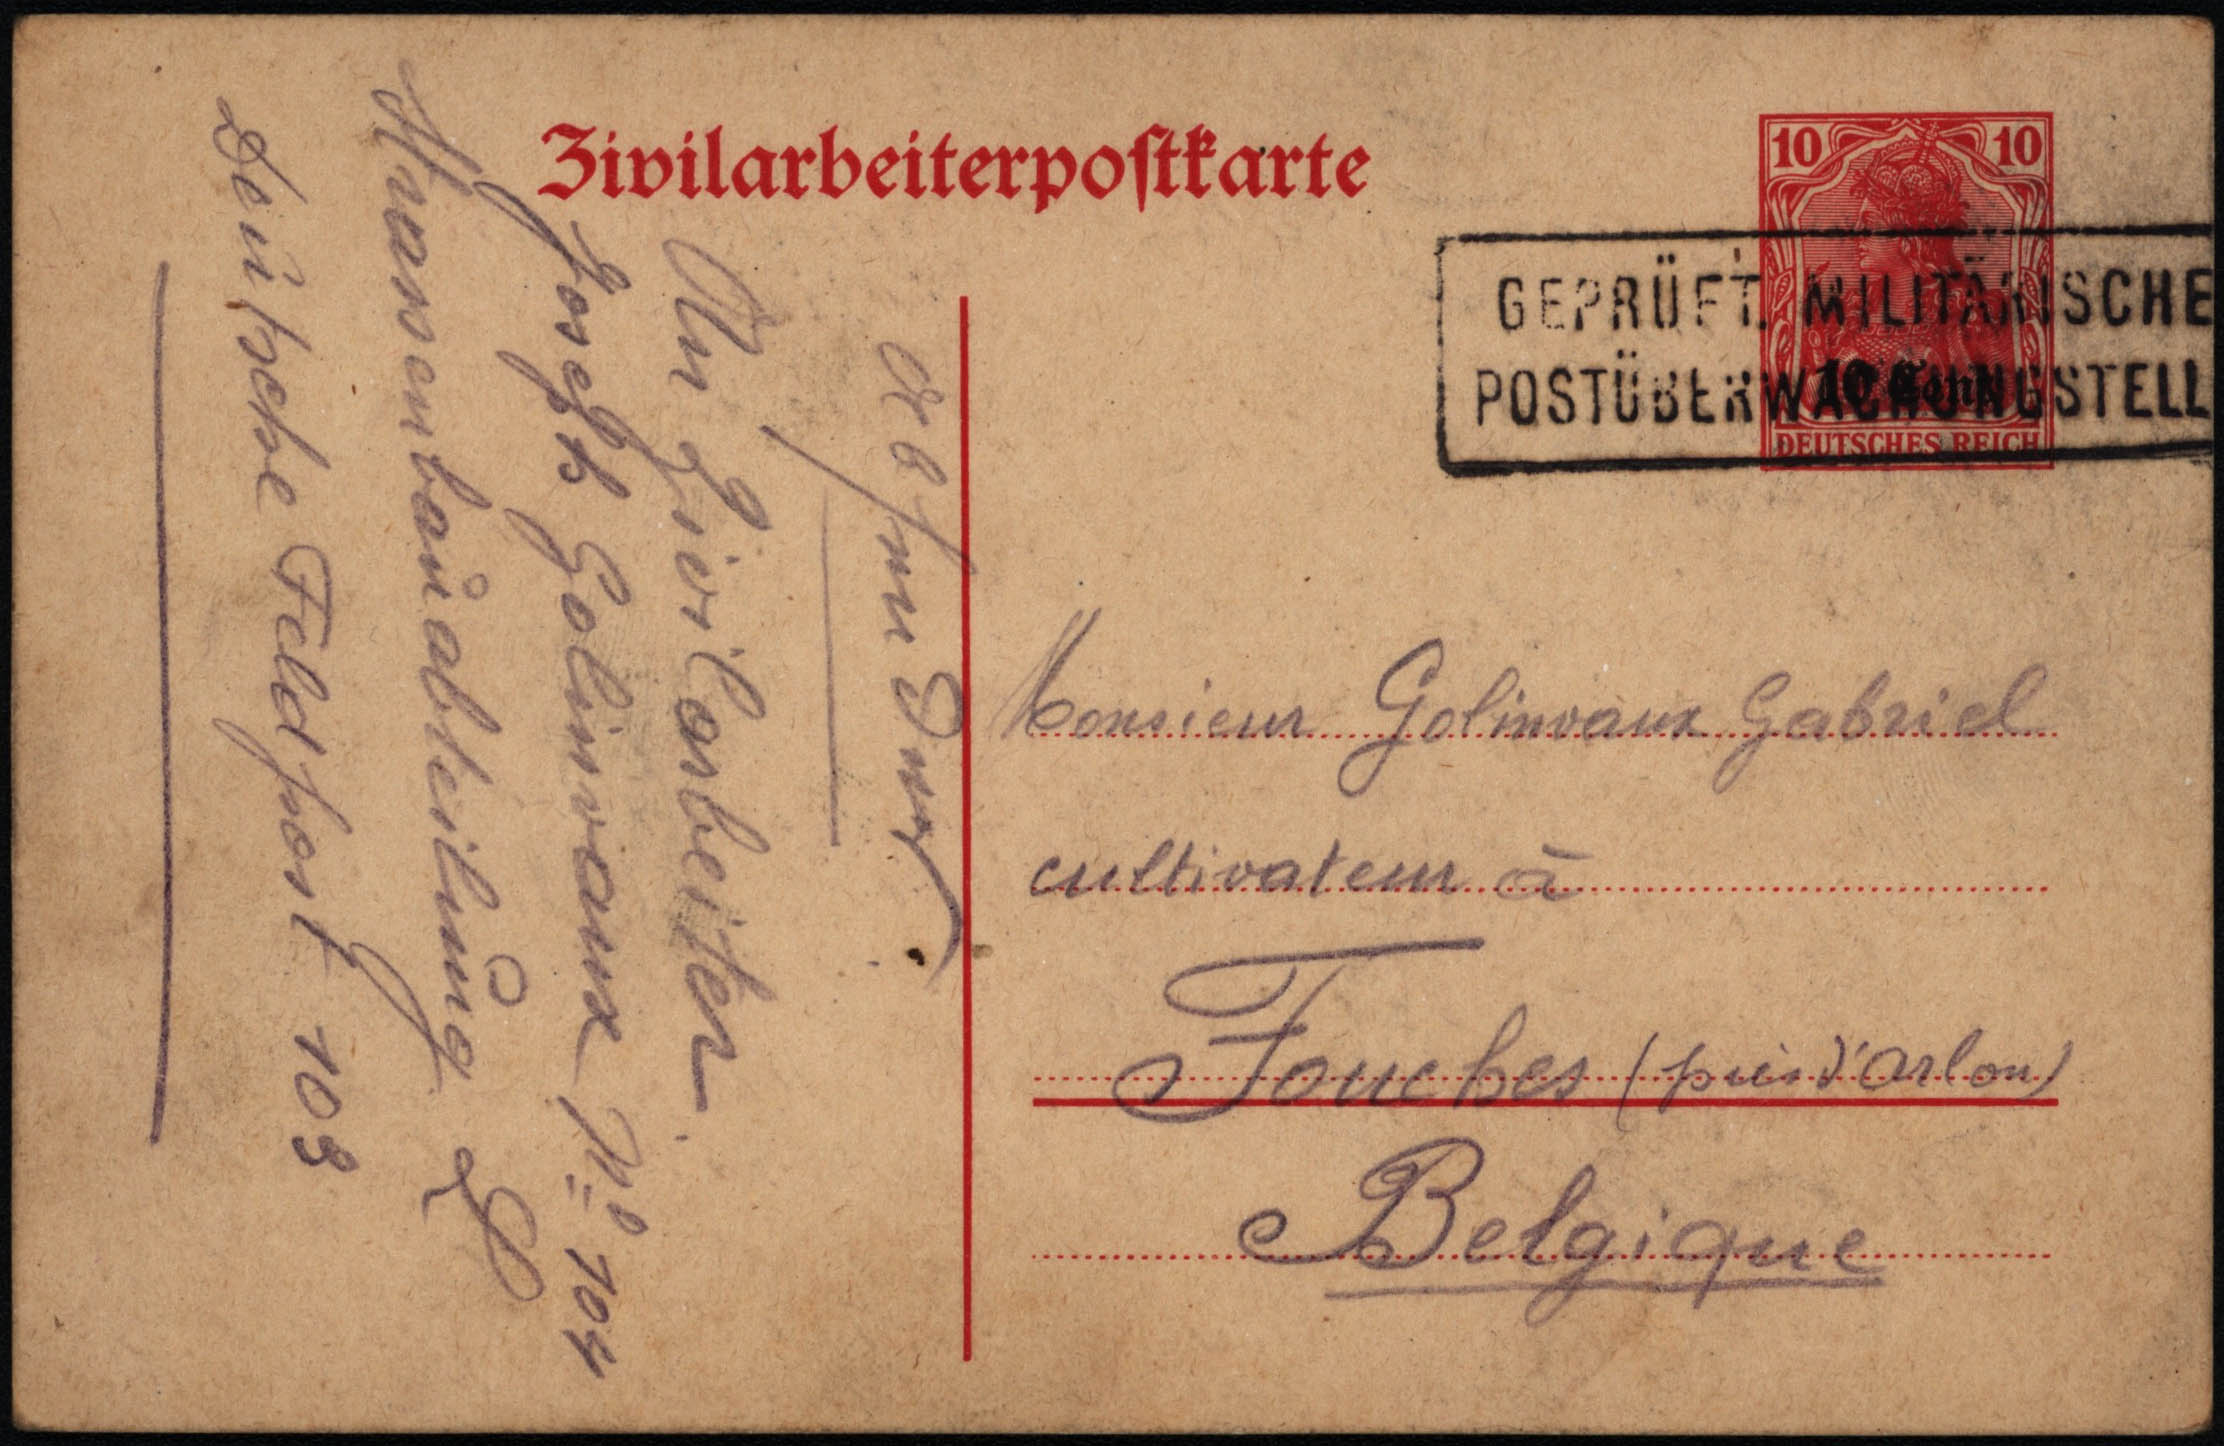 Zivilarbeiterpostkarte
10 10
GEPRÜFT. MILITÄRISCHE
POSTÜBERWACHUNGSTELL
10 Cent.
DEUTSCHES REICH
Monsieur Golinvaux Gabriel
cultivateur à
Fouches (près d'Arlon)
Belgique
An Zivilarbeiter.
Joseph Golinvaux Nº 104
Strassenbauabteilung
Deutsche Feldpost 103